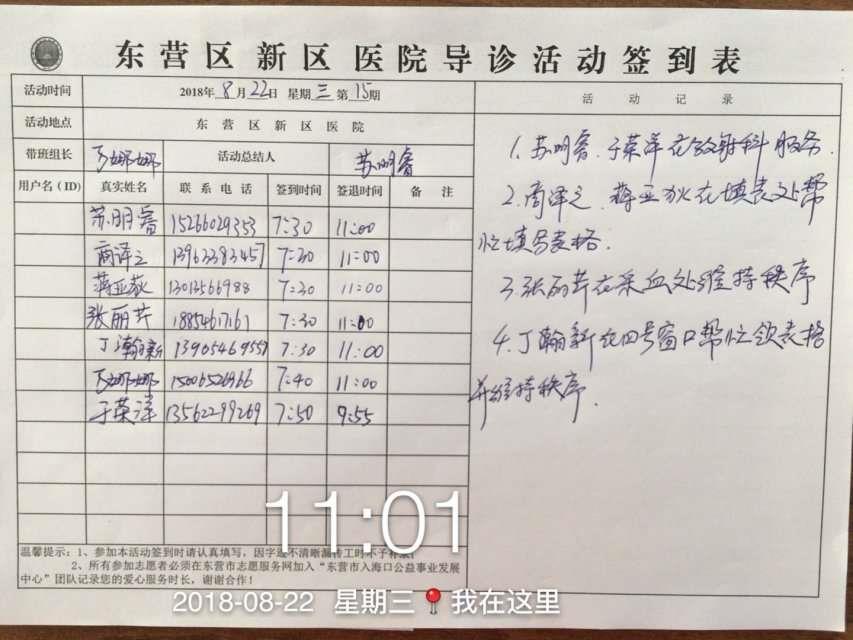 东营区新区医院导诊活动签到表
活动时间 2018年8月22日 星期三 第15期 活动记录
活动地点 东营区新区医院
带班组长 娜娜 活动总结人 苏明睿
用户名(ID) 真实姓名 联系电话 签到时间 签退时间 备注
苏明睿 15266029353 7:30 11:00
商泽之 13963383457 7:30 11:00
蒋亚荻 13013566988 7:30 11:00
张丽芹 18854617161 7:30 11:00
丁瀚新 13905469557 7:30 11:00
娜娜 15006526966 7:40 11:00
于荣洋 13562299269 7:50 9:55
1.苏明睿.于荣洋在放射科服务.
2.商泽之.蒋亚荻在填表处帮
忙填写表格.
3.张丽芹在采血处维持秩序
4.丁瀚新在四号窗口帮忙领表格
并维持秩序.
温馨提示：1、参加本活动签到时请认真填写，因字迹不清晰漏转工时不予补录！
2、所有参加志愿者必须在东营市志愿服务网加入“东营市入海口公益事业发展
中心”团队记录您的爱心服务时长，谢谢合作！
11:01
2018-08-22 星期三 我在这里